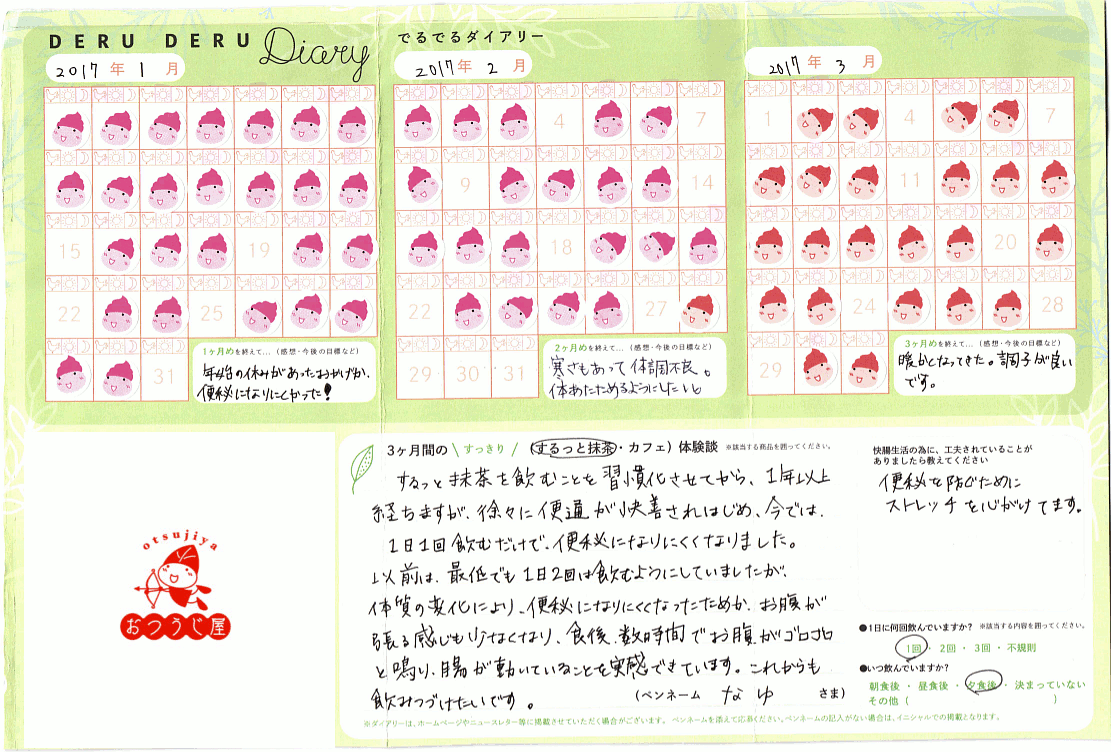 DERU DERU Diary
でるでるダイアリー
2017年 1月
2017年 2月
2017年 3月
4
7
1
4
7
9
14
11
15
19
18
20
22
25
22
27
24
28
31
29
30
31
29
1ヶ月めを終えて…（感想・今後の目標など）
年始の休みがあったおかげか、
便秘になりにくかった!
2ヶ月めを終えて…（感想・今後の目標など）
寒さもあって体調不良。
体あたためるようにしたい。
3ヶ月めを終えて…（感想・今後の目標など）
暖かくなってきた。調子が良い
です。
otsujiya
おつうじ屋
3ヶ月間の \ すっきり / （するっと抹茶・カフェ）体験談 ※該当する商品を囲ってください。
するっと抹茶を飲むことを習慣化させてから、1年以上
経ちますが、徐々に便通が改善されはじめ、今では、
1日1回飲むだけで、便秘になりにくくなりました。
以前は、最低でも1日2回は飲むようにしていましたが、
体質の変化により、便秘になりにくくなったためか、お腹が
張る感じも少なくなり、食後、数時間でお腹がゴロゴロ
と鳴り、腸が動いていることを実感できています。これからも
飲みつづけたいです。
（ペンネーム なゆ さま）
※ダイアリーは、ホームページやニュースレター等に掲載させていただく場合がございます。 ペンネームを添えて応募ください。ペンネームの記入がない場合は、イニシャルでの掲載となります。
快腸生活の為に、工夫されていることが
ありましたら教えてください
便秘を防ぐために
ストレッチを心がけてます。
●1日に何回飲んでいますか？ ※該当する内容を囲ってください。
1回・2回・3回・不規則
●いつ飲んでいますか？
朝食後・昼食後・夕食後・決まっていない
その他（ ）